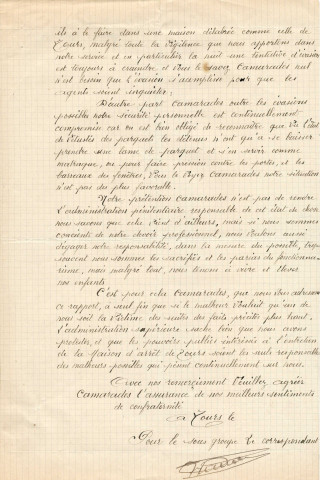 ils à le faire dans une maison délabrée comme celle de
Tours, malgré toute la vigilence que nous apportons dans
notre service et en particulier la nuit une tentative d'évasion
est toujours à craindre et vous le savez Camarades nul
n'est besoin que l'évasion s'accomplisse pour que les
agents soient inquiétés;
D'autre part Camarades outre les évasions
possible notre sécurité personnelle est continuellement
compromise car on est bien obligé de reconnaître que vu l'état
de vétusté des parquets les détenus n'ont qu'à se baisser
prendre une lame de parquet et s'en servir comme
matraque, ou pour faire pression contre les portes, et les
barreaux des fenêtres, Vous le voyez Camarades notre situation
n'est pas des plus favorable.
Notre prétention Camarades n'est pas de rendre
l'administration pénitentiaire responsable de cet état de chose
nous savons que cela vient d'ailleurs, mais si nous sommes
conscients de notre devoir professionnel, nous voulons aussi
dégager notre responsabilité, dans la mesure du possible,
sommes les sacrifiés et les parias du fonctionna-
risme, mais malgré tout, nous tenons à vivre et élever
nos enfants.
C'est pour cela Camarades, que nous vous adressons
ce rapport, à seul fin que si le malheur voulait qu'un de
nous soit la victime des suites des faits précités plus haut,
l'administration supérieure sache bien que nous avons
protesté, et que les pouvoirs publics intéressés à l'entretien
de la Maison d'arrêt de Tours soient les seuls responsables
des malheurs possibles qui pèsent continuellement sur nous.
Avec nos remerciements Veuillez agréer
Camarades l'assurance de nos meilleurs sentiments
de confraternité
à Tours le
Pour le sous groupe le correspondant